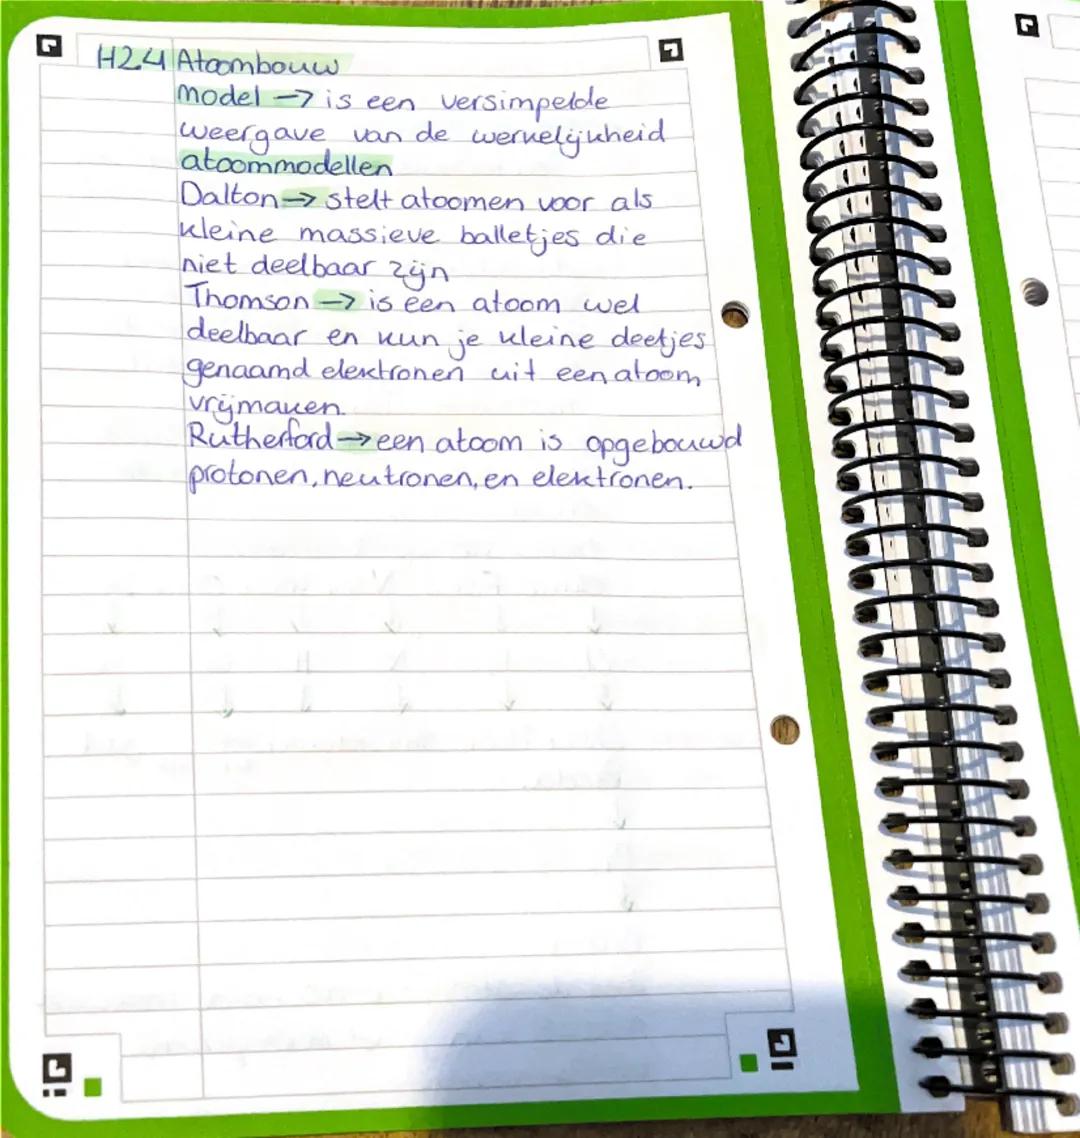 H2.4 Atoombouw
model → is een versimpelde
weergave van de werkelijkheid
atoommodellen
Dalton → stelt atoomen voor als
kleine massieve balletjes die
niet deelbaar zijn
Thomson → is een atoom wel
deelbaar en kun je kleine deetjes
genaamd elektronen uit een atoom
vrijmaken.
Rutherford → een atoom is opgebouwd
protonen, neutronen, en elektronen.